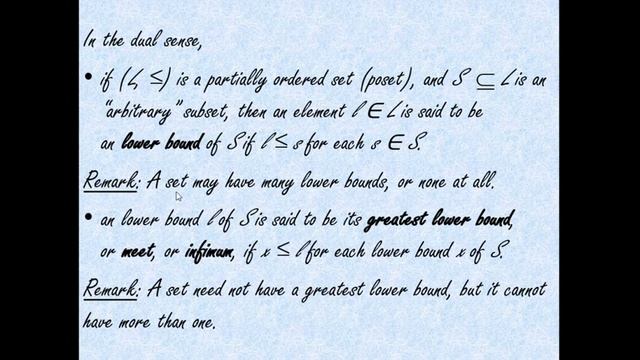 In the dual sense,
• if (L, ≤) is a partially ordered set (poset), and S ⊆ L is an
“arbitrary” subset, then an element l ∈ L is said to be
an lower bound of S if l ≤ s for each s ∈ S.
Remark: A set may have many lower bounds, or none at all.
• an lower bound l of S is said to be its greatest lower bound,
or meet, or infimum, if x ≤ l for each lower bound x of S.
Remark: A set need not have a greatest lower bound, but it cannot
have more than one.